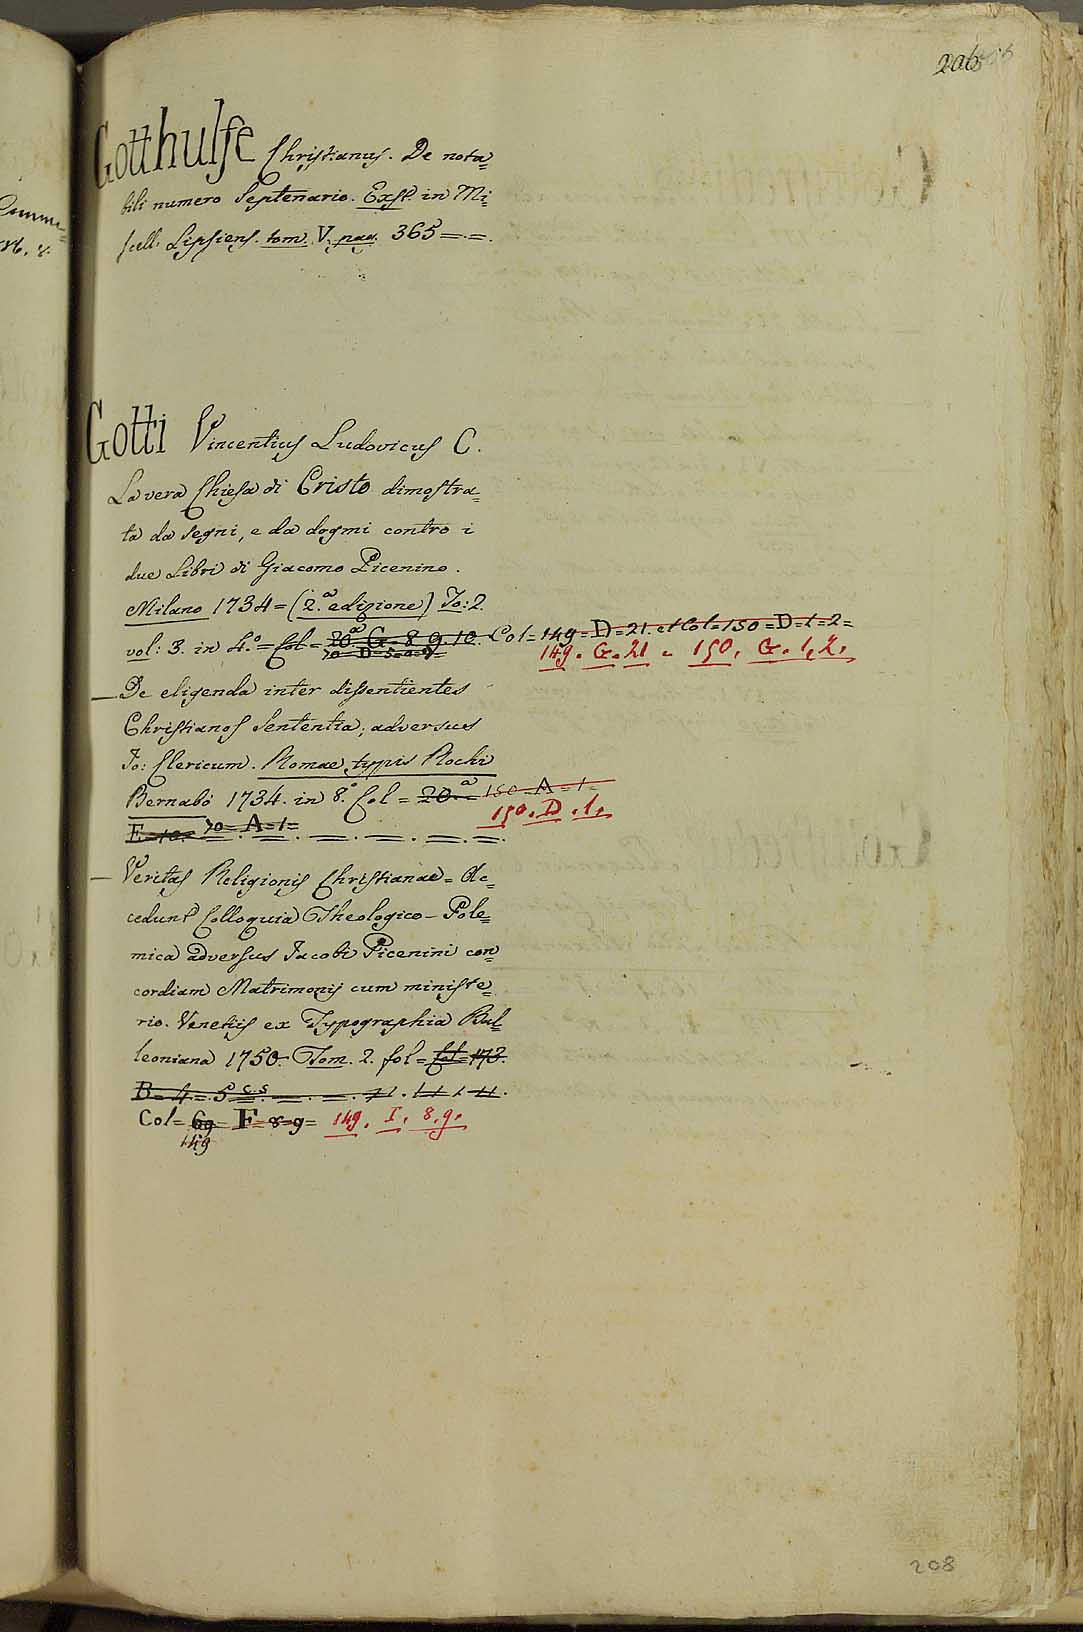 206
Gotthulfe Christianus. De nota=
bili numero Septenario. Exst. in Mi=
scell. Lipsiens. tom. V. pag. 365 = . = .
Gotti Vincentius Ludovicus C.
La vera Chiesa di Cristo dimostra=
ta da segni, e da dogmi contro i
due Libri di Giacomo Picenino.
Milano 1734 = (2.a edizione) To: 2.
vol: 3. in 4.o = Col = 20.a G. 8. 9. 10. Col = 149 = D = 21. et Col = 150 = D = 1 = 2 =
70 = D = 5 = a = 7 =
149. G. 21 = 150. G. 1, 2.
— De eligenda inter dissentientes
Christianos Sententia, adversus
Jo: Clericum. Romae typis Rochi
Bernabò 1734. in 8.o Col = 20.a = 150 = A = 1 =
150. D. 1.
E = 10 = 70 = A = 1 =
— Veritas Religionis Christianae = Ac=
cedunt Colloquia Theologico-Pole=
mica adversus Jacobi Picenini con
cordiam Matrimonij cum ministe=
rio. Venetiis ex Typographia Bal=
leoniana 1750. Tom. 2. fol = Col = 173.
B = 4 = 5 c.s
Col = 69 F = 8 = 9 = 149. I. 8. 9.
149
208